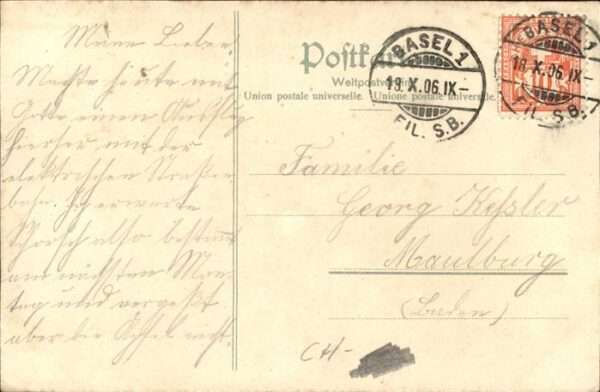 Meine Lieben
Machte heute mit
Gotte einen Ausflug
hierher mit der
elektrischen Straßen-
bahn. Ich erwarte
also bestimmt
am nächsten Mon-
tag und vergeßt
aber die nicht.
Postkarte
Weltpostverein
Union postale universelle. Unione postale universale.
BASEL 1
18.X.06.IX–
FIL. S.B.
BASEL 1
18.X.06.IX–
FIL. S.B.
Familie
Georg Keßler
Maulburg
(Baden)
CH-